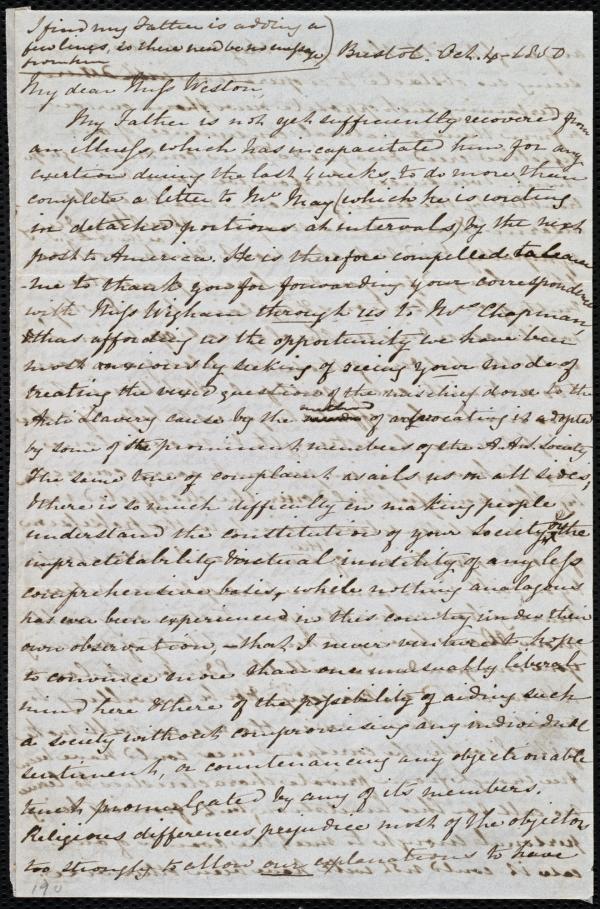 I find my Father is adding a
few lines, so there need be no message
from him
Bristol. Oct. 4 - 1850
My dear Miss Weston,
My Father is not yet sufficiently recovered from
an illness, which has incapacitated him for any
exertion during the last 4 weeks, to do more than
complete a letter to Mr May (which he is writing
in detached portions at intervals) by the next
post to America. He is therefore compelled to leave
me to thank you for forwarding your correspondence
with Miss Wigham through us to Mrs Chapman
& thus affording us the opportunity we have been
most anxiously seeking of seeing your mode of
treating the vexed question of the mischief done to the
Anti Slavery cause by the method of advocating it adopted
by some of the prominent members of the A. A. S. Society
The same tone of complaint assails us on all sides,
& there is so much difficulty in making people
understand the constitution of your Society, & the
impracticability & actual inutility of any less
comprehensive basis, while nothing analogous
has ever been experienced in this country under their
own observation, - that I never venture to hope
to convince more than one unusually liberal
mind here & there of the possibility of aiding such
a society without compromising any individual
sentiment, or countenancing any objectionable
tenet promulgated by any of its members.
Religious differences prejudice most of the objectors
too strongly to allow our explanations to have
190